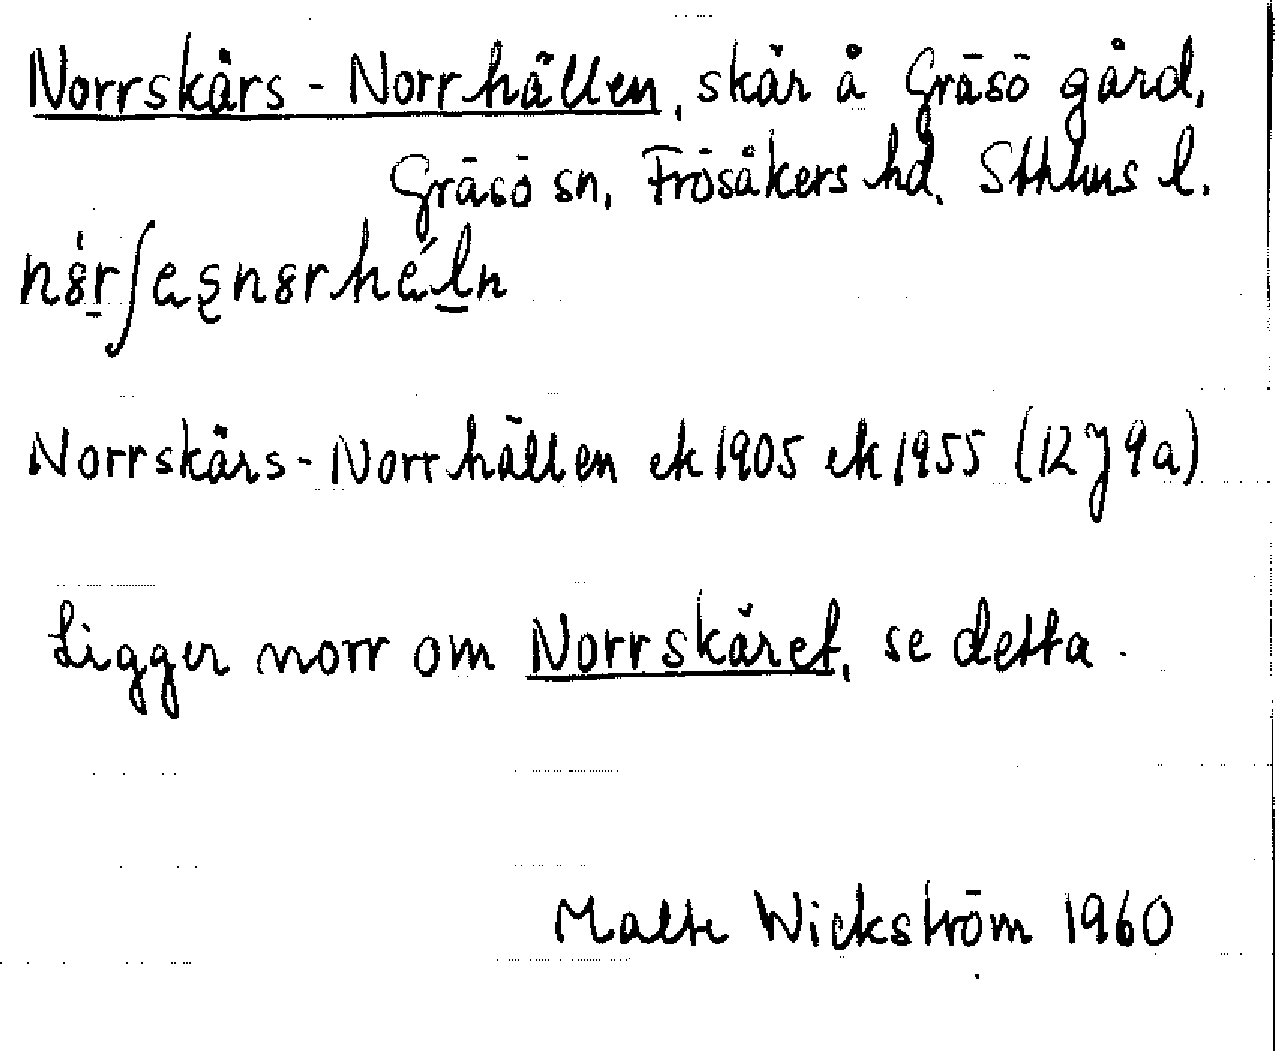 Norrskärs-Norrhällen, skär å Gräsö gård,
Gräsö sn, Frösåkers hd. Sthlms l.
Norrskärs-Norrhällen ek 1905 ek 1955 (12J 9a)
Ligger norr om Norrskäret, se detta.
Malte Wickström 1960